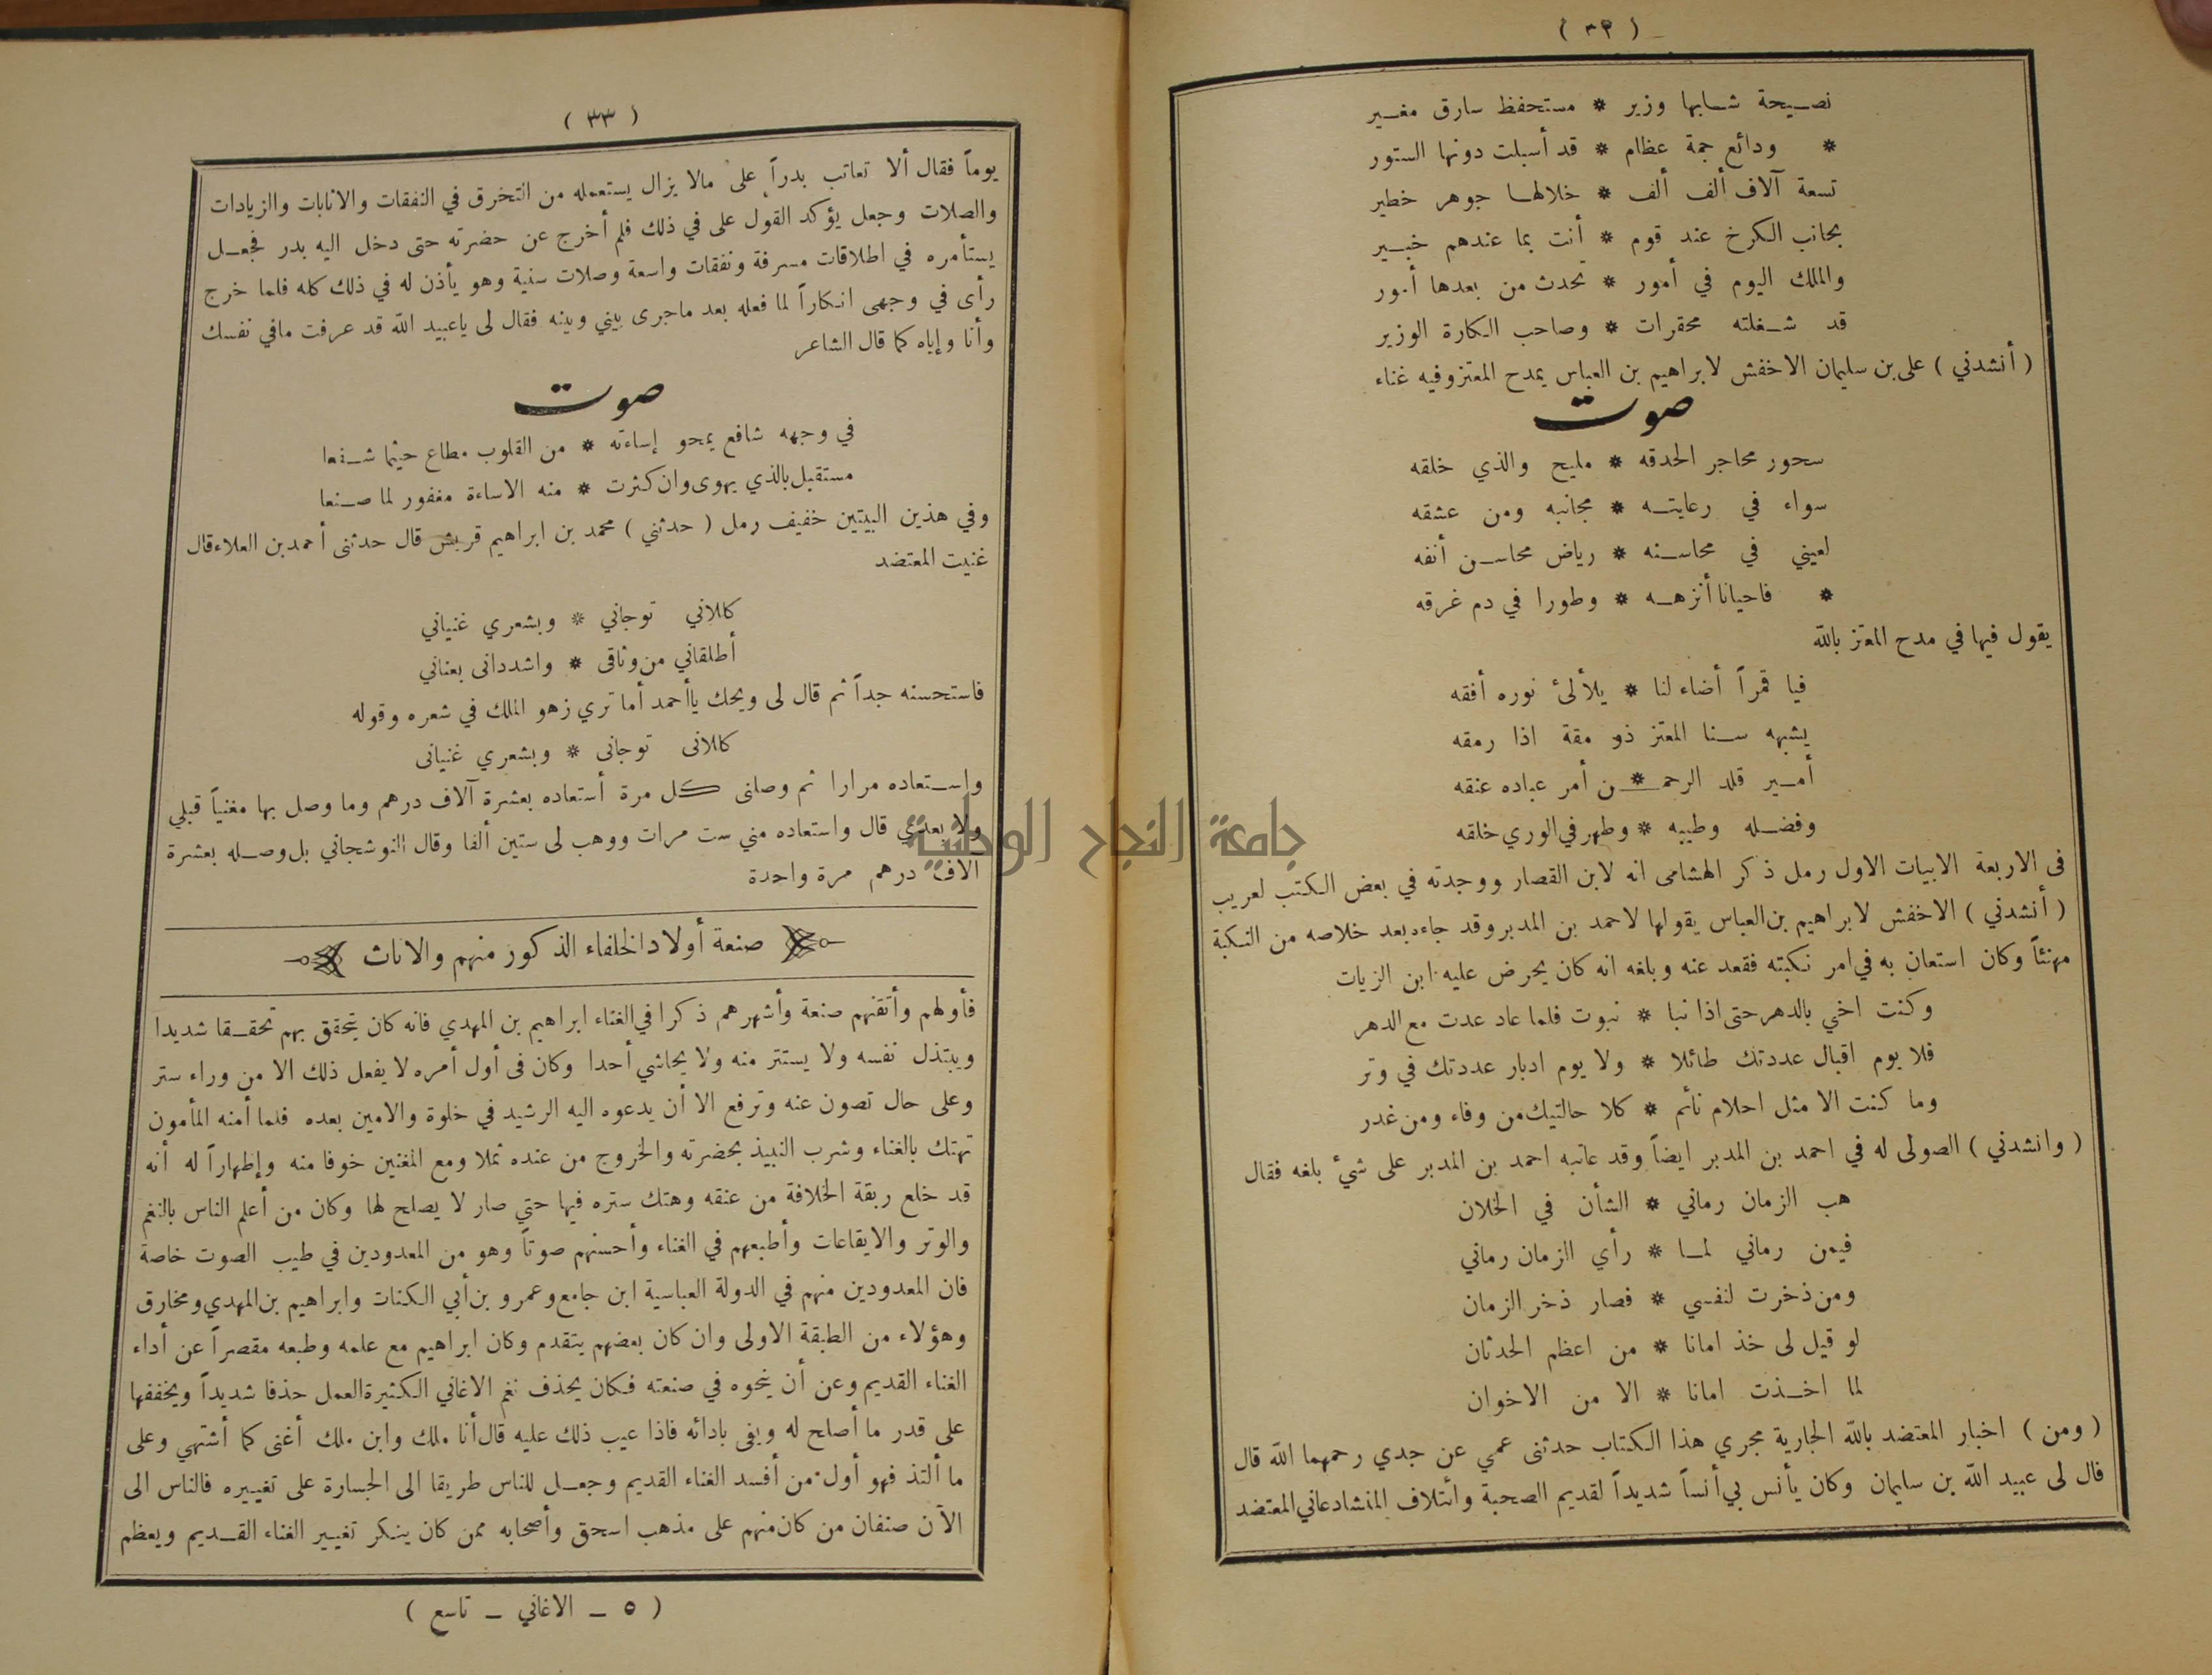 ( ٣٢ )
نصيحة شابها وزير * مستحفظ سارق مغير
* ودائع جمة عظام * قد أسبلت دونها الستور
تسعة آلاف ألف ألف * خلالها جوهر خطير
بجانب الكرخ عند قوم * أنت بما عندهم خبير
والملك اليوم في أمور * تحدث من بعدها أمور
قد شغلته محقرات * وصاحب الكارة الوزير
( أنشدني ) على بن سليمان الاخفش لابراهيم بن العباس يمدح المعتز وفيه غناء
صوت
سحور محاجر الحدقه * مليح والذي خلقه
سواء في رعايته * مجانبه ومن عشقه
لعيني في محاسنه * رياض محاسن أنقه
* فاحيانا أنزهه * وطورا في دم غرقه
يقول فيها في مدح المعتز بالله
فيا قمراً أضاء لنا * يلألئ نوره أفقه
يشبهه سنا المعتز ذو مقة اذا رمقه
أمير قلد الرحمـ * ـن أمر عباده عنقه
وفضله وطيبه * وطهر في الوري خلقه
فى الاربعة الابيات الاول رمل ذكر الهشامى انه لابن القصار ووجدته في بعض الكتب لعريب
( أنشدني ) الاخفش لابراهيم بن العباس يقولها لاحمد بن المدبر وقد جاءه بعد خلاصه من النكبة
مهنئاً وكان استعان به في امر نكبته فقعد عنه وبلغه انه كان يحرض عليه ابن الزيات
وكنت اخي بالدهر حتى اذا نبا * نبوت فلما عاد عدت مع الدهر
فلا يوم اقبال عددتك طائلا * ولا يوم ادبار عددتك في وتر
وما كنت الا مثل احلام نائم * كلا حالتيك من وفاء ومن غدر
( وانشدني ) الصولى له في احمد بن المدبر ايضاً وقد عاتبه احمد بن المدبر على شيء بلغه فقال
هب الزمان رماني * الشأن في الخلان
فيمن رماني لما * رأي الزمان رماني
ومن ذخرت لنفسي * فصار ذخر الزمان
لو قيل لى خذ امانا * من اعظم الحدثان
لما اخذت امانا * الا من الاخوان
( ومن ) اخبار المعتضد بالله الجارية مجري هذا الكتاب حدثنى عمي عن جدي رحمهما الله قال
قال لى عبيد الله بن سليمان وكان يأنس بي أنساً شديداً لقديم الصحبة وأتلاف المنشا دعاني المعتضد
( ٣٣ )
يوماً فقال ألا تعاتب بدراً على مالا يزال يستعمله من التخرق في النفقات والاثابات والزيادات
والصلات وجعل يؤكد القول على في ذلك فلم أخرج عن حضرته حتى دخل اليه بدر فجعل
يستأمره في اطلاقات مسرفة ونفقات واسعة وصلات سنية وهو يأذن له في ذلك كله فلما خرج
رأى في وجهى انكاراً لما فعله بعد ماجرى بيني وبينه فقال لى ياعبيد الله قد عرفت مافي نفسك
وأنا وإياه كما قال الشاعر
صوت
في وجهه شافع يمحو إساءته * من القلوب مطاع حيثما شفعا
مستقبل بالذي يهوى وان كثرت * منه الاساءة مغفور لما صنعا
وفي هذين البيتين خفيف رمل ( حدثني ) محمد بن ابراهيم قريش قال حدثنى أحمد بن العلاء قال
غنيت المعتضد
كللاني توجاني * وبشعري غنياني
أطلقاني من وثاقى * واشددانى بعناني
فاستحسنه جداً ثم قال لى ويحك ياأحمد أما تري زهو الملك في شعره وقوله
كللانى توجانى * وبشعري غنيانى
واستعاده مرارا ثم وصلنى كل مرة أستعاده بعشرة آلاف درهم وما وصل بها مغنياً قبلي
ولا بعدي قال واستعاده مني ست مرات ووهب لى ستين ألفا وقال النوشجاني بل وصله بعشرة
آلاف درهم مرة واحدة
صنعة أولاد الخلفاء الذكور منهم والاناث
فأولهم وأتقنهم صنعة وأشهرهم ذكرا في الغناء ابراهيم بن المهدي فانه كان يتحقق بهم تحققا شديدا
ويبتذل نفسه ولا يستتر منه ولا يحاشي أحدا وكان فى أول أمره لا يفعل ذلك الا من وراء ستر
وعلى حال تصون عنه وترفع الا أن يدعوه اليه الرشيد في خلوة والامين بعده فلما أمنه المأمون
تهتك بالغناء وشرب النبيذ بحضرته والخروج من عنده ثملا ومع المغنين خوفا منه وإظهاراً له أنه
قد خلع ربقة الخلافة من عنقه وهتك ستره فيها حتي صار لا يصلح لها وكان من أعلم الناس بالنغم
والوتر والايقاعات وأطبعهم في الغناء وأحسنهم صوتاً وهو من المعدودين في طيب الصوت خاصة
فان المعدودين منهم في الدولة العباسية ابن جامع وعمرو بن أبي الكنات وابراهيم بن المهدي ومخارق
وهؤلاء من الطبقة الاولى وان كان بعضهم يتقدم وكان ابراهيم مع علمه وطبعه مقصراً عن أداء
الغناء القديم وعن أن ينحوه في صنعته فكان يحذف نغم الاغاني الكثيرة العمل حذفا شديداً ويخففها
على قدر ما أصلح له ويفى بادائه فاذا عيب ذلك عليه قال أنا ملك وابن ملك أغنى كما أشتهي وعلى
ما ألتذ فهو أول من أفسد الغناء القديم وجعل للناس طريقا الى الجسارة على تغييره فالناس الى
الآن صنفان من كان منهم على مذهب اسحق وأصحابه ممن كان ينكر تغيير الغناء القديم ويعظم
( ٥ ـ الاغاني ـ تاسع )
جامعة النجاح الوطنية